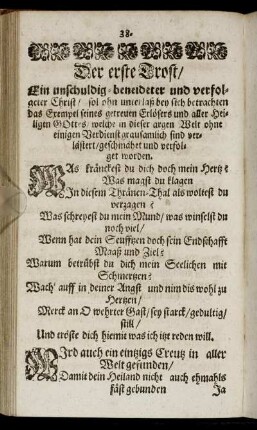 38.
Der erste Trost/
Ein unschuldig-beneideter und verfol-
gter Christ/ sol ohn unterlaß bey sich betrachten
das Exempel seines getreuen Erlösers und aller Hei-
ligen GOttes/ welche in dieser argen Welt ohne
einigen Verdienst grausamlich sind ver-
lästert/ geschmähet und verfol-
get worden.
WAs kränckest du dich doch mein Hertz?
Was magst du klagen
In diesem Thränen-Thal als woltest du
verzagen?
Was schreyest du mein Mund/ was winselst du
noch viel/
Wenn hat dein Seufftzen doch sein Endschafft
Maaß und Ziel?
Warum betrübst du dich mein Seelichen mit
Schmertzen?
Wach' auff in deiner Angst und nim dis wohl zu
Hertzen/
Merck an O wehrter Gast/ sey starck/ gedultig/
still/
Und tröste dich hiemit was ich itzt reden will.
WIrd auch ein eintzigs Creutz in aller
Welt gefunden/
Damit dein Heiland nicht auch ehmahls
fäst gebunden
Ja